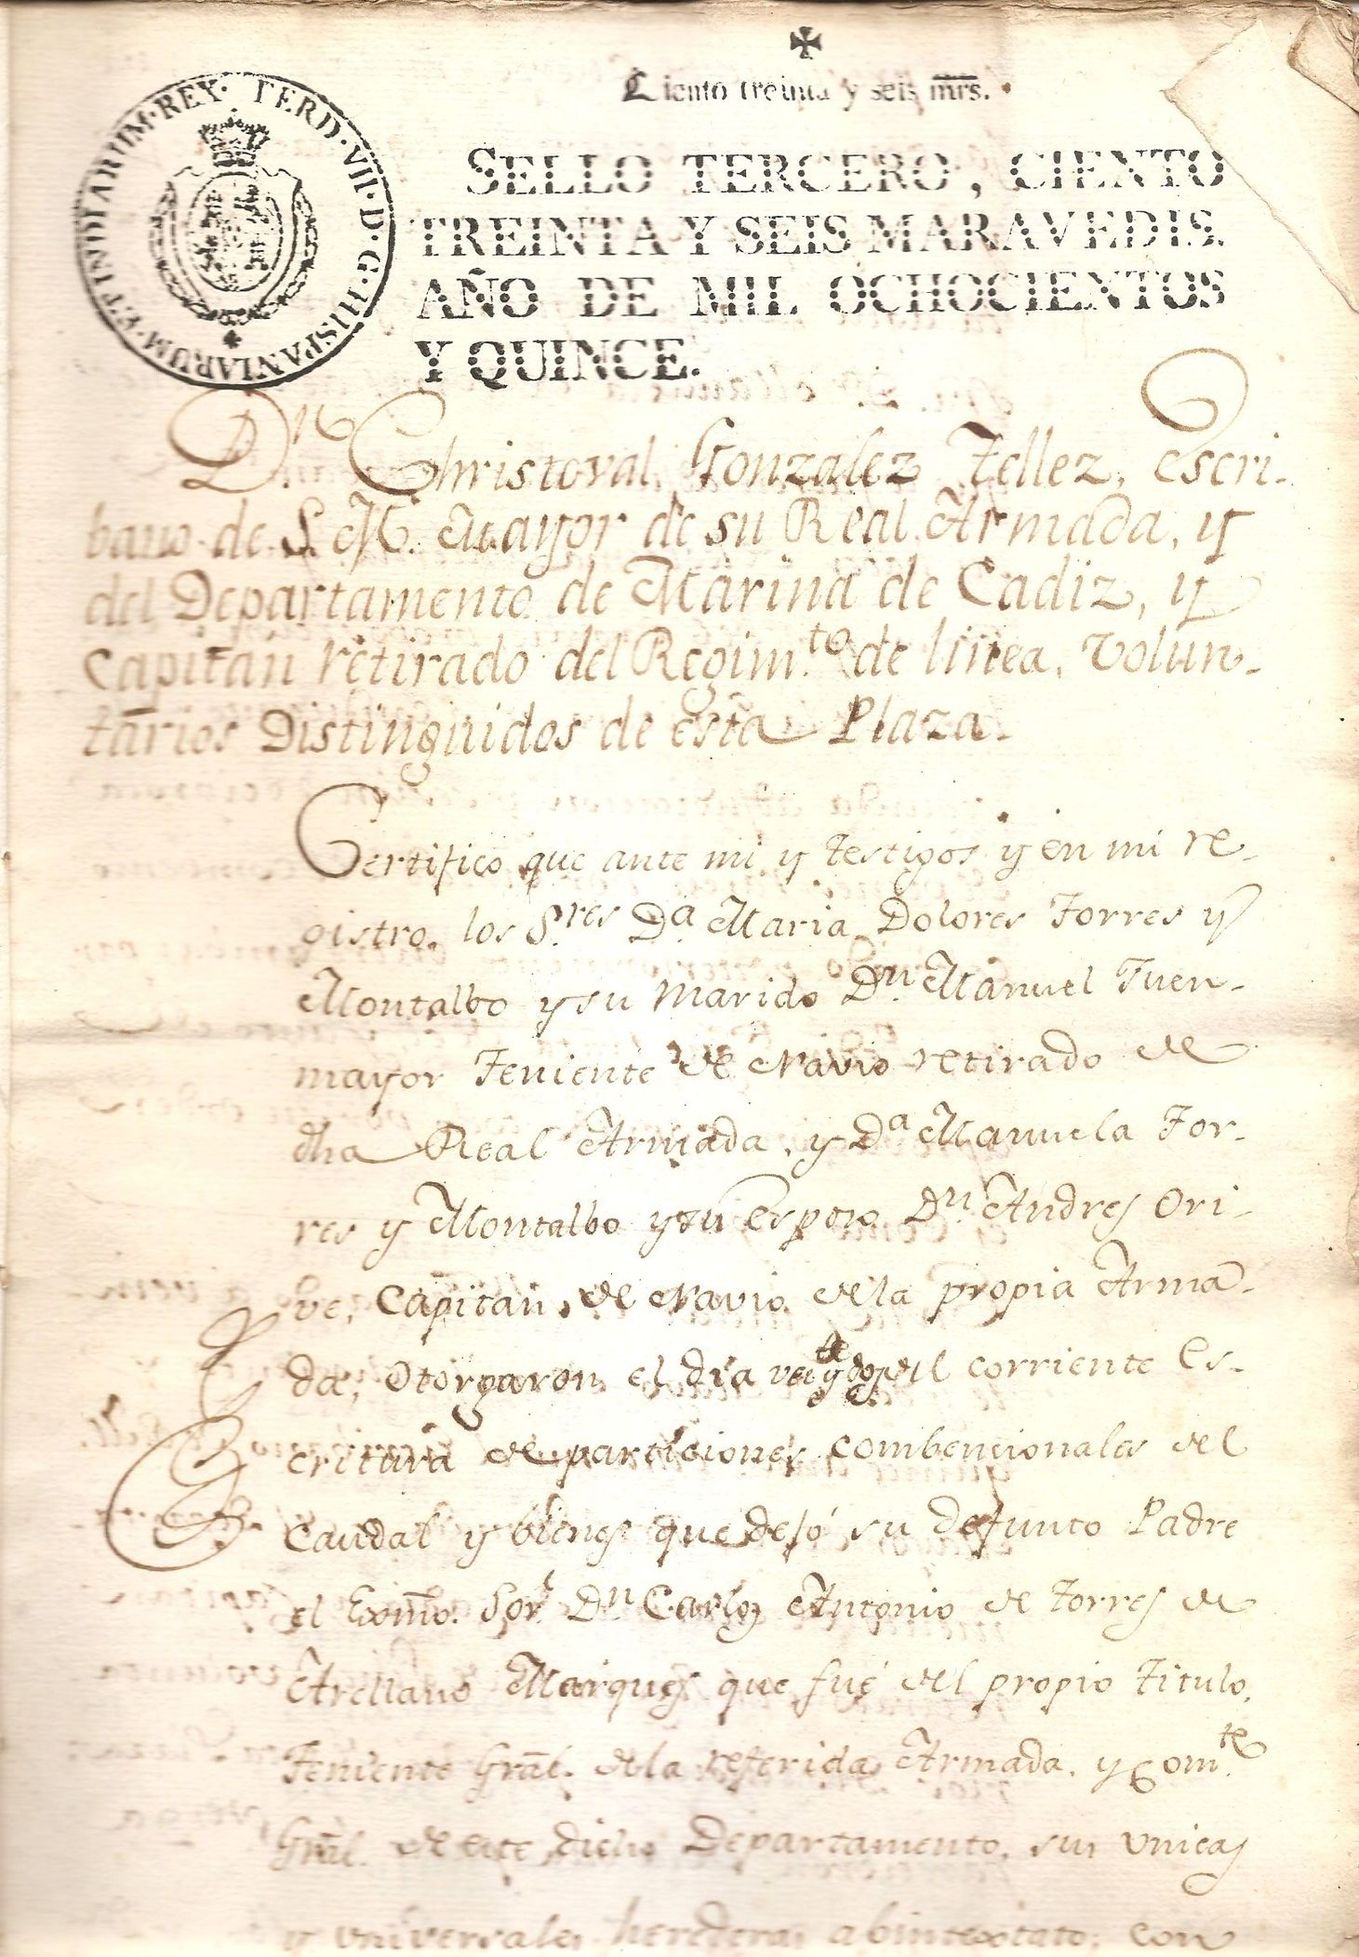 FERD·VII·D·G·HISPANIARUM·ET INDIARUM·REY·
Ciento treinta y seis mrs.
SELLO TERCERO, CIENTO
TREINTA Y SEIS MARAVEDIS.
AÑO DE MIL OCHOCIENTOS
Y QUINCE.
Dn. Christoval Gonzalez Tellez, escri-
bano de S. M. Mayor de su Real Armada, y
del Departamento de Marina de Cadiz, y
Capitan retirado del Regim.to de linea, Volun-
tarios Distinguidos de esta Plaza.
Certifico que ante mi y testigos y en mi re-
gistro, los S.res Da. Maria Dolores Torres y
Montalbo y su marido Dn. Manuel Tuen-
mayor Teniente de Navio retirado de
dha Real Armada, y Da Manuela Tor-
res y Montalbo y su Esposo Dn. Andres Ori-
ve, Capitan de Navio de la propia Arma-
da, Otorgaron el dia del corriente Es-
critura de particiones combencionales del
Caudal y bienes que dejó su defunto Padre
el Exmo. Sor. Dn Carlos Antonio de Torres de
Arellano Marques que fué del propio Titulo,
Teniente Gral. de la referida Armada, y Com.te
Gral. de este dicho Departamento, sus unicas
y universales herederas abintextato; con